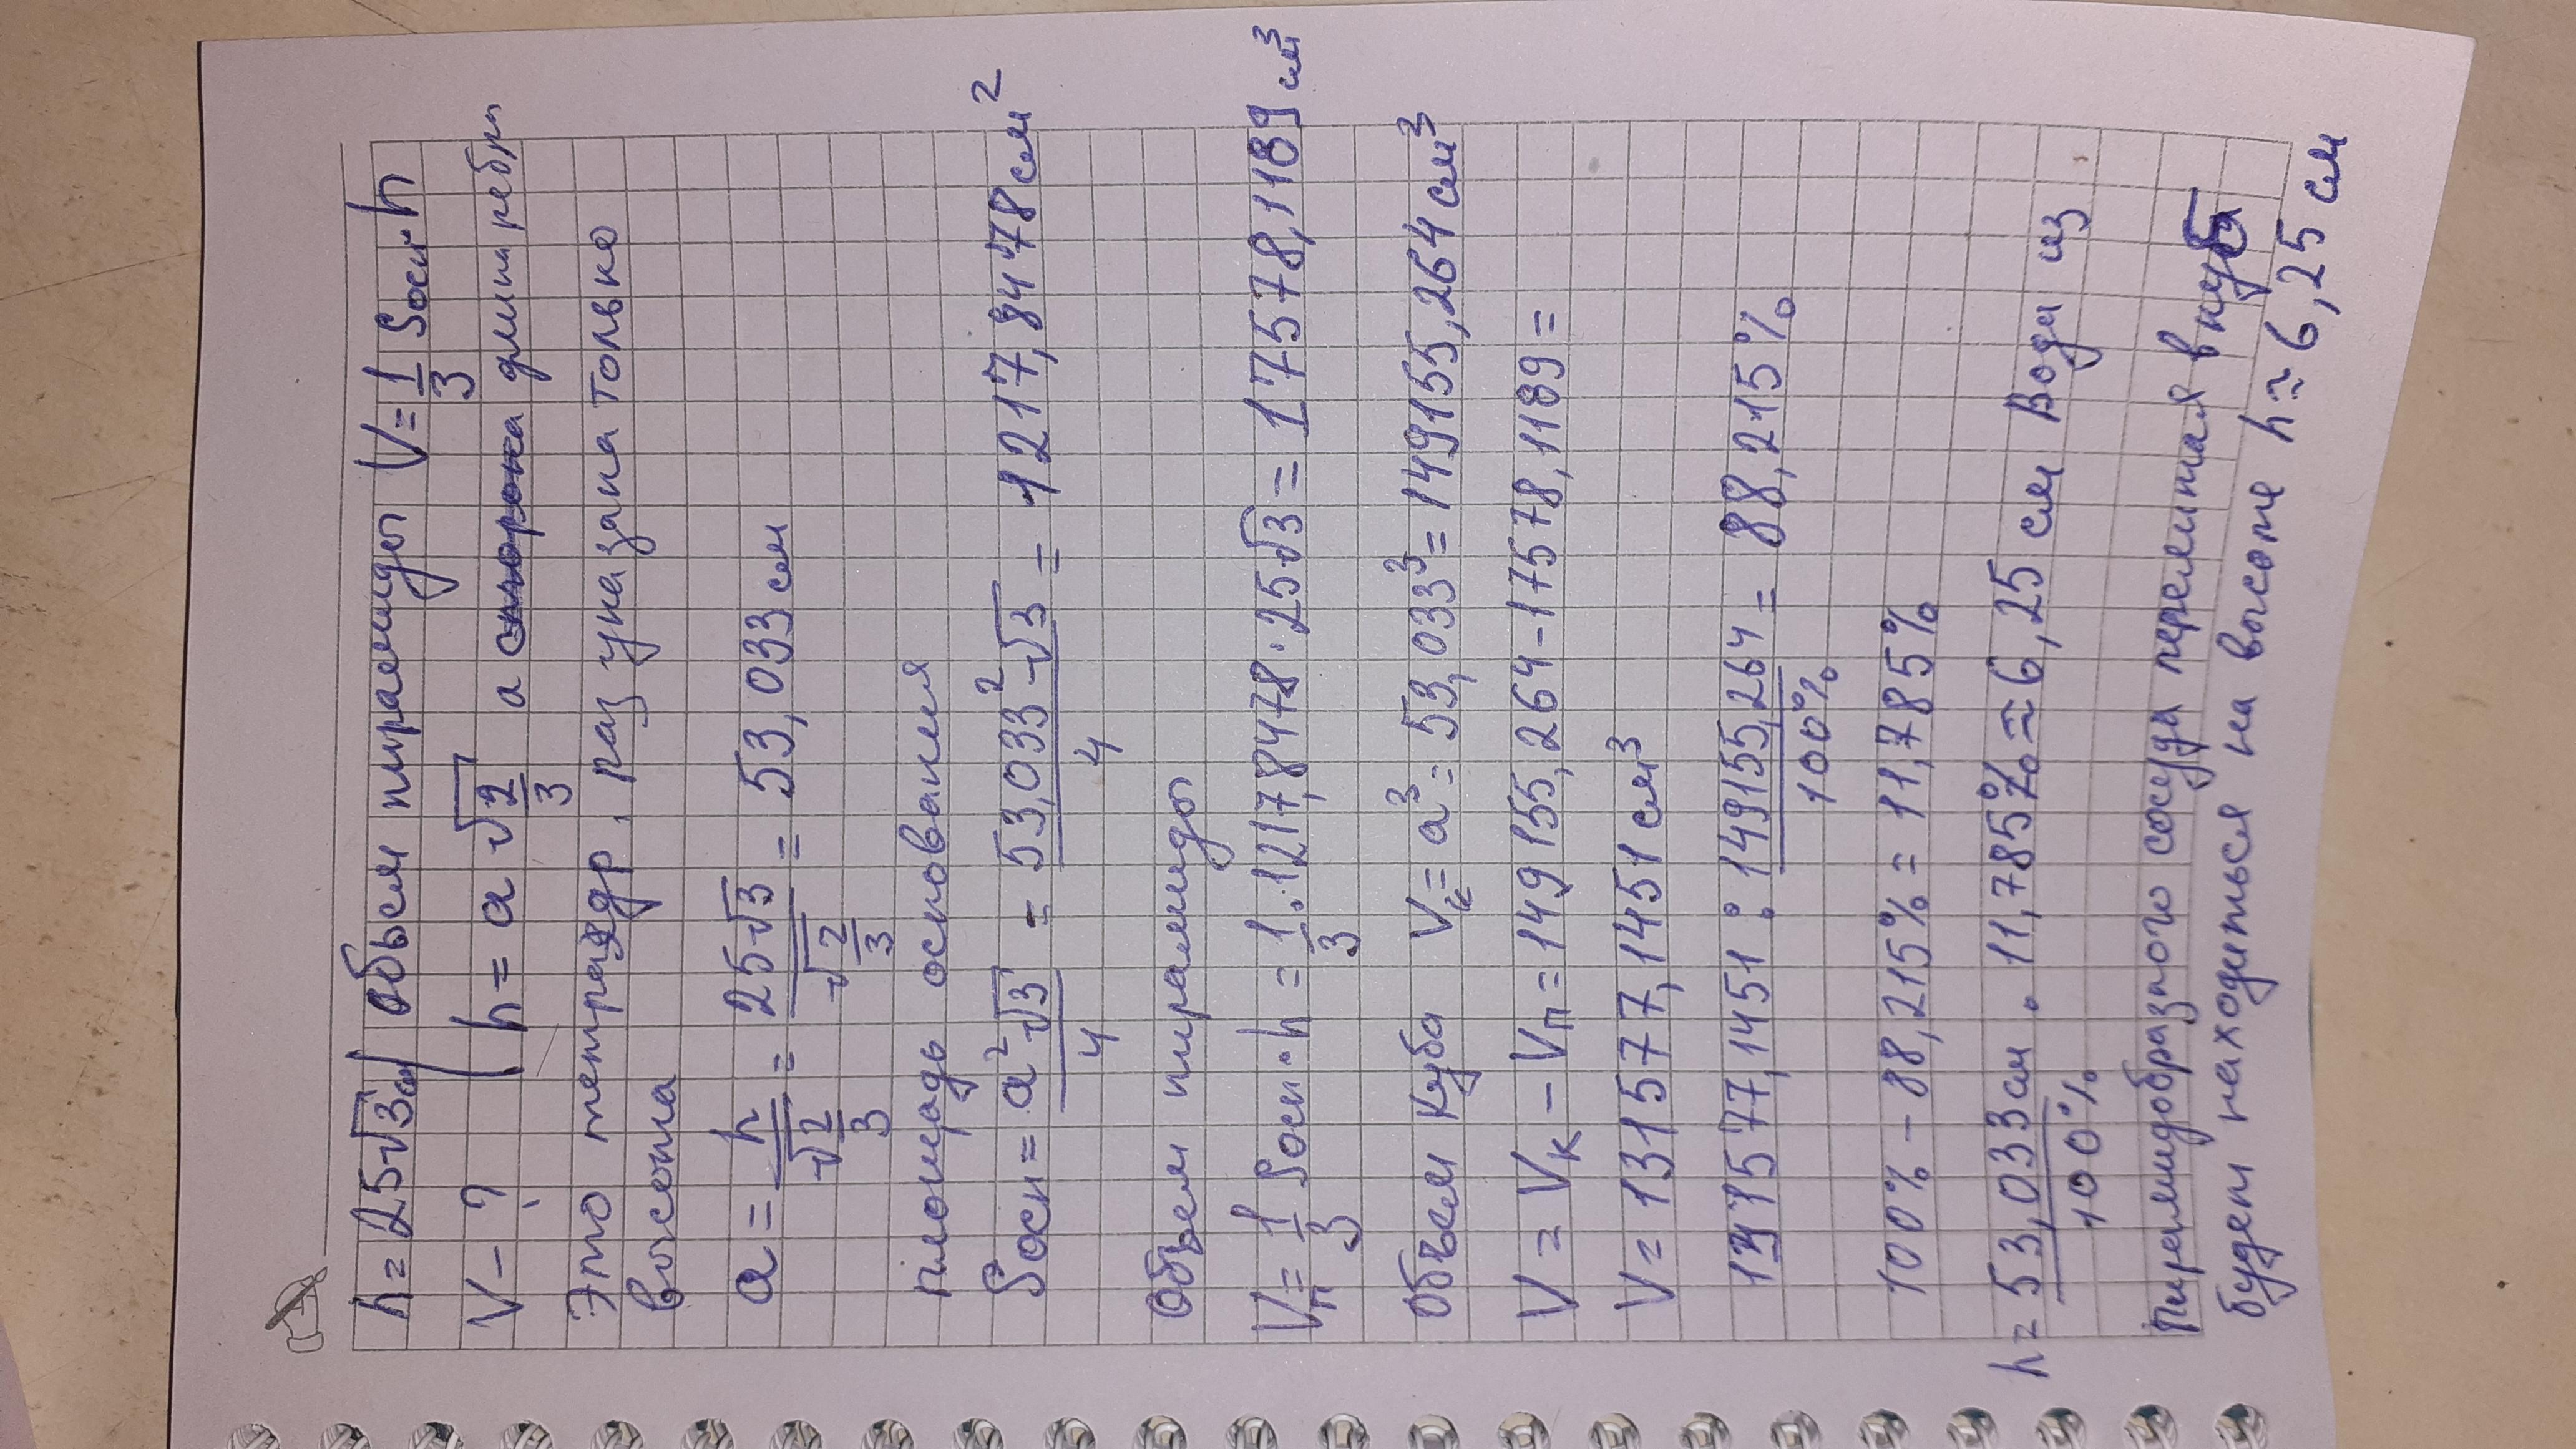 h = 25√3 см Объем пирамиды V = 1/3 Sосн h
V - ? h = a √2/3 a сторона длина ребра
Это тетраэдр, раз указана только
высота
a = h/√2/3 = 25√3/√2/3 = 53,033 см
площадь основания
Sосн = a²√3/4 = 53,033²√3/4 = 1217,8478 см²
Объем пирамиды
Vп = 1/3 Sосн · h = 1/3 · 1217,8478 · 25√3 = 17578,1189 см³
Объем куба Vк = a³ = 53,033³ = 149155,264 см³
V = Vк - Vп = 149155,264 - 17578,1189 =
V = 131577,1451 см³
131577,1451 : 149155,264/100% = 88,215%
100% - 88,215% = 11,785%
h = 53,033 см/100% · 11,785% ≈ 6,25 см Вода из
пирамидобразного сосуда перелитая в куб
будет находиться на высоте h ≈ 6,25 см